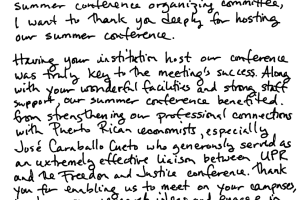 summer conference organizing committee,
I want to thank you deeply for hosting
our summer conference.
Having your institution host our conference
was truly key to the meeting's success. Along
with your wonderful facilities and strong staff
support, our summer conference benefited
from strengthening our professional connections
with Puerto Rican economists, especially
José Caraballo Cueto who generously served as
an extremely effective liaison between UPR
and the Freedom and Justice conference. Thank
you for enabling us to meet on your campuses,